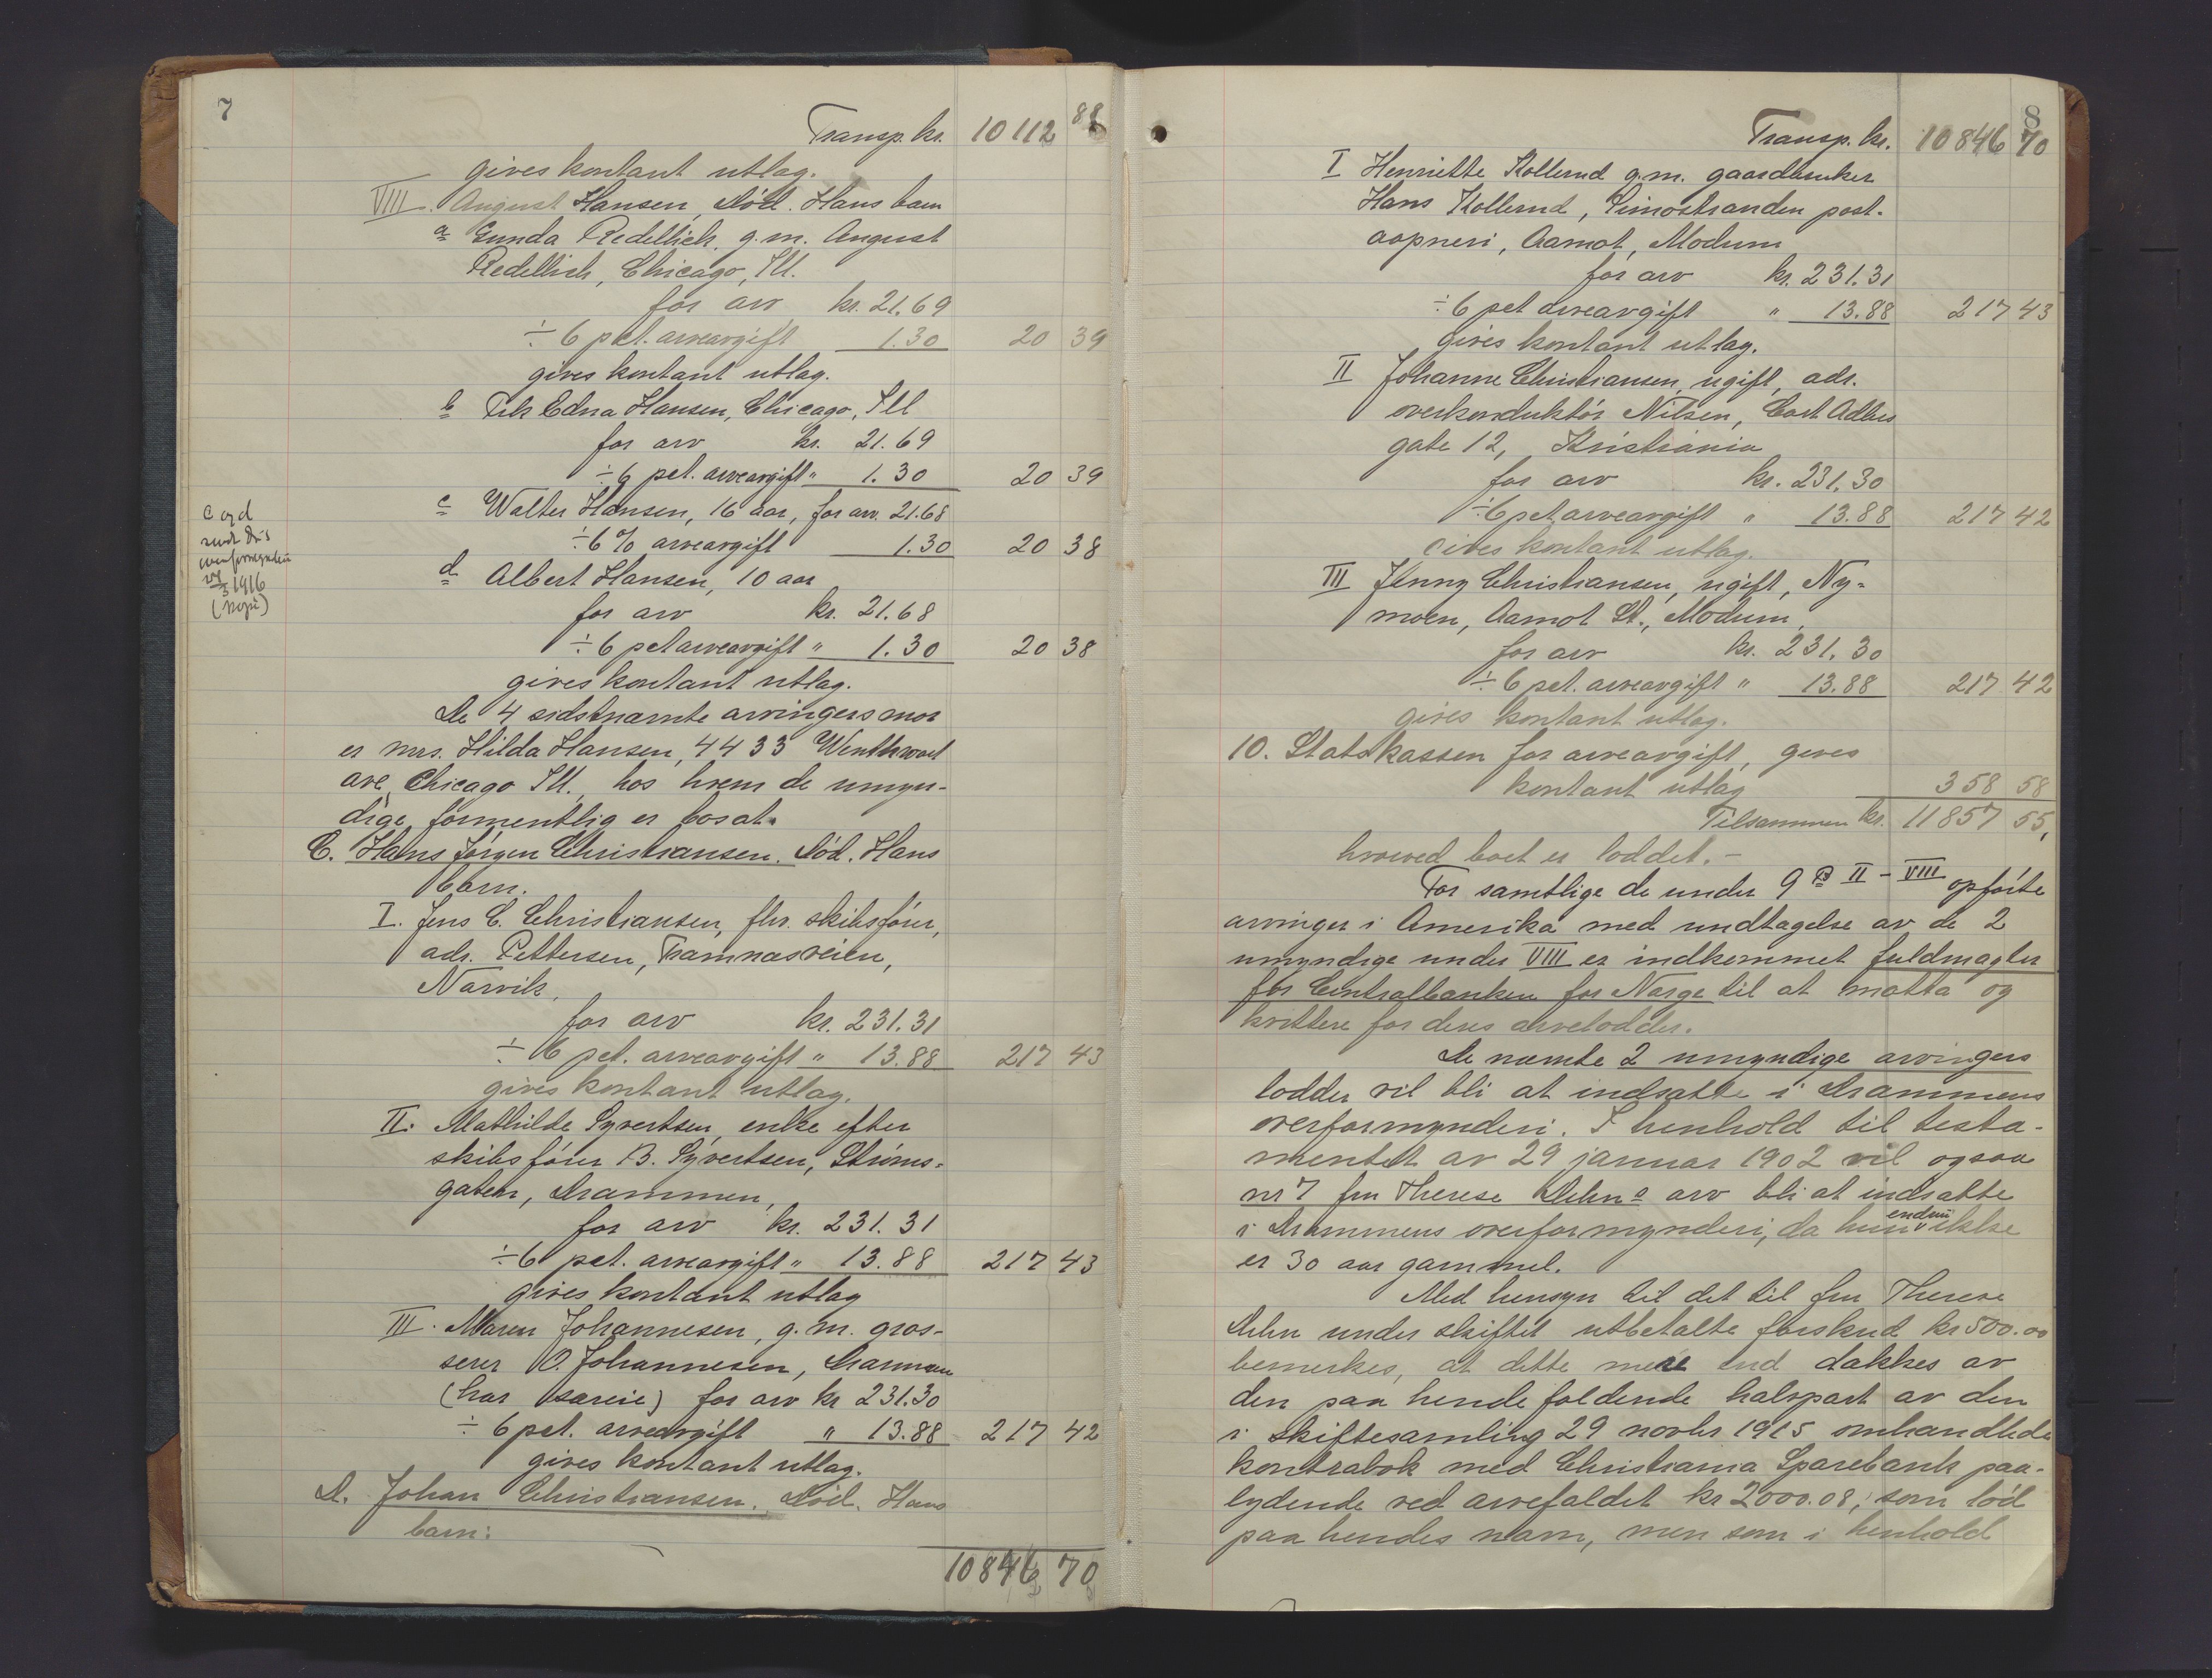 7
Transp. kr. 10 112 88
gives kontant utlag.
VIII. August Hansen, død. Hans barn
a Gunda Redellich, g. m. August
Redellich, Chicago, Ill.
for arv kr. 21.69
÷ 6 pct. arveavgift 1.30 20 39
gives kontant utlag.
b Frk Edna Hansen, Chicago, Ill
for arv kr. 21.69
÷ 6 pct. arveavgift " 1.30 20 39
c Walter Hansen, 16 aar, for arv. 21.68
÷ 6 % arveavgift 1.30 20 38
d Albert Hansen, 10 aar
for arv kr. 21.68
÷ 6 pct arveavgift " 1.30 20 38
gives kontant utlag.
De 4 sidstnævnte arvingers mor
er mrs. Hilda Hansen, 4433
ave, Chicago Ill., hos hvem de umyn-
dige formentlig er bosat.
c og d
sendt Drs
overformynderi
1916
C. Hans Jørgen Christiansen. Død. Hans
barn.
I. Jens C. Christiansen, fhv. skibsfører,
adr. Pettersen, Framnæsveien,
Narvik,
for arv kr. 231.31
÷ 6 pct. arveavgift " 13.88 217 43
gives kontant utlag.
II. Mathilde Syvertsen, enke efter
skibsfører B. Syvertsen, Strøms-
gaten, Drammen,
for arv kr. 231.31
÷ 6 pct. arveavgift " 13.88 217 43
gives kontant utlag
III. Maren Johannesen, g. m. gros-
serer O. Johannesen, Drammen
(har særeie) for arv kr 231.30
÷ 6 pct. arveavgift " 13.88 217 42
gives kontant utlag.
D. Johan Christiansen. Død. Hans
barn:
10846 70
8
Transp. kr. 10 846 70
I Henriette Kollerud g. m. gaardbruker
Hans Kollerud, Simostranden post-
aapneri, Aamot, Modum
for arv kr. 231.31
÷ 6 pct arveavgift " 13.88 217 43
gives kontant utlag.
II Johanne Christiansen, ugift, adr.
overkonduktør Nilsen, Cort Adlers
gate 12, Kristiania
for arv kr. 231.30
÷ 6 pct arveavgift " 13.88 217 42
gives kontant utlag.
III Jenny Christiansen, ugift, Ny-
moen, Aamot St., Modum,
for arv kr. 231.30
÷ 6 pct. arveavgift " 13.88 217 42
gives kontant utlag.
10. Statskassen for arveavgift, gives
kontant utlag 358 58
Tilsammen kr. 11857 55,
hvorved boet er loddet. -
For samtlige de under 9 B II - VIII opførte
arvinger i Amerika med undtagelse av de 2
umyndige under VIII er indkommet fuldmagter
for Centralbanken for Norge til at motta og
kvittere for deres arvelodder.
De nævnte 2 umyndige arvingers
lodder vil bli at indsætte i Drammens
overformynderi. I henhold til testa-
mentet av 29 januar 1902 vil ogsaa
nr 7 fru Therese Dehns arv bli at indsætte
i Drammens overformynderi, da hun endnu ikke
er 30 aar gammel.
Med hensyn til det til fru Therese
Dehn under skiftet utbetalte forskud kr 500.00
bemerkes, at dette mere end dækkes av
den paa hende faldende halvpart av den
i skiftesamling 29 novbr 1915 omhandlede
kontrabok med Christiania Sparebank paa-
lydende ved arvefaldet kr 2000.08, som lød
paa hendes navn, men som i henhold